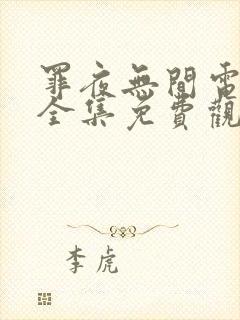 罪夜無間電
全集免費觀
李虎